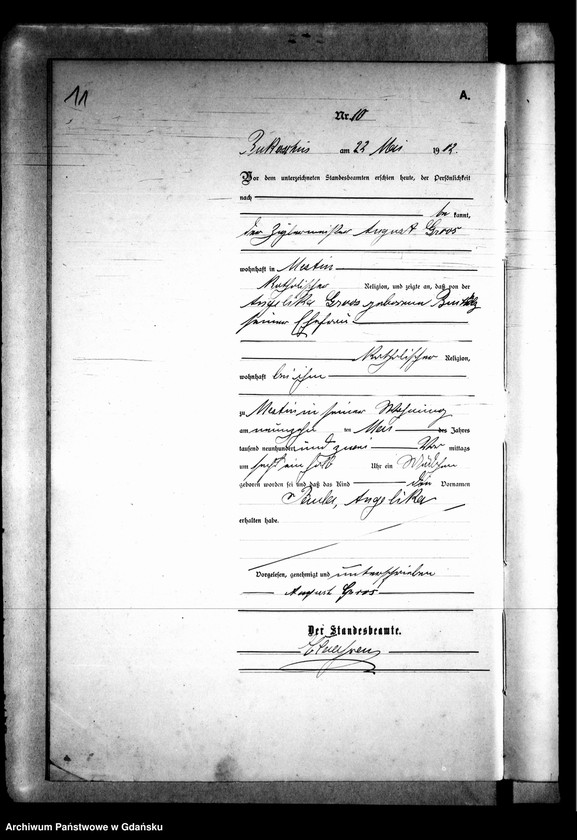 11
A.
Nr. 10
am 22 Mai 1902.
Vor dem unterzeichneten Standesbeamten erschien heute, der Persönlichkeit
nach
be kannt,
der Zieglermeister August Groos
wohnhaft in Mertin
katholischer Religion, und zeigte an, daß von der
Angelika Groos geborene
seiner Ehefrau
katholischer Religion,
wohnhaft bei ihm
zu Mertin in seiner Wohnung
am neunzehn ten Mai des Jahres
tausend neunhundert und zwei Vor mittags
um sechs ein halb Uhr ein Mädchen
geboren worden sei und daß das Kind den Vornamen
Paula, Angelika
erhalten habe.
Vorgelesen, genehmigt und unterschrieben
August Groos
Der Standesbeamte.
Archiwum Państwowe w Gdańsku